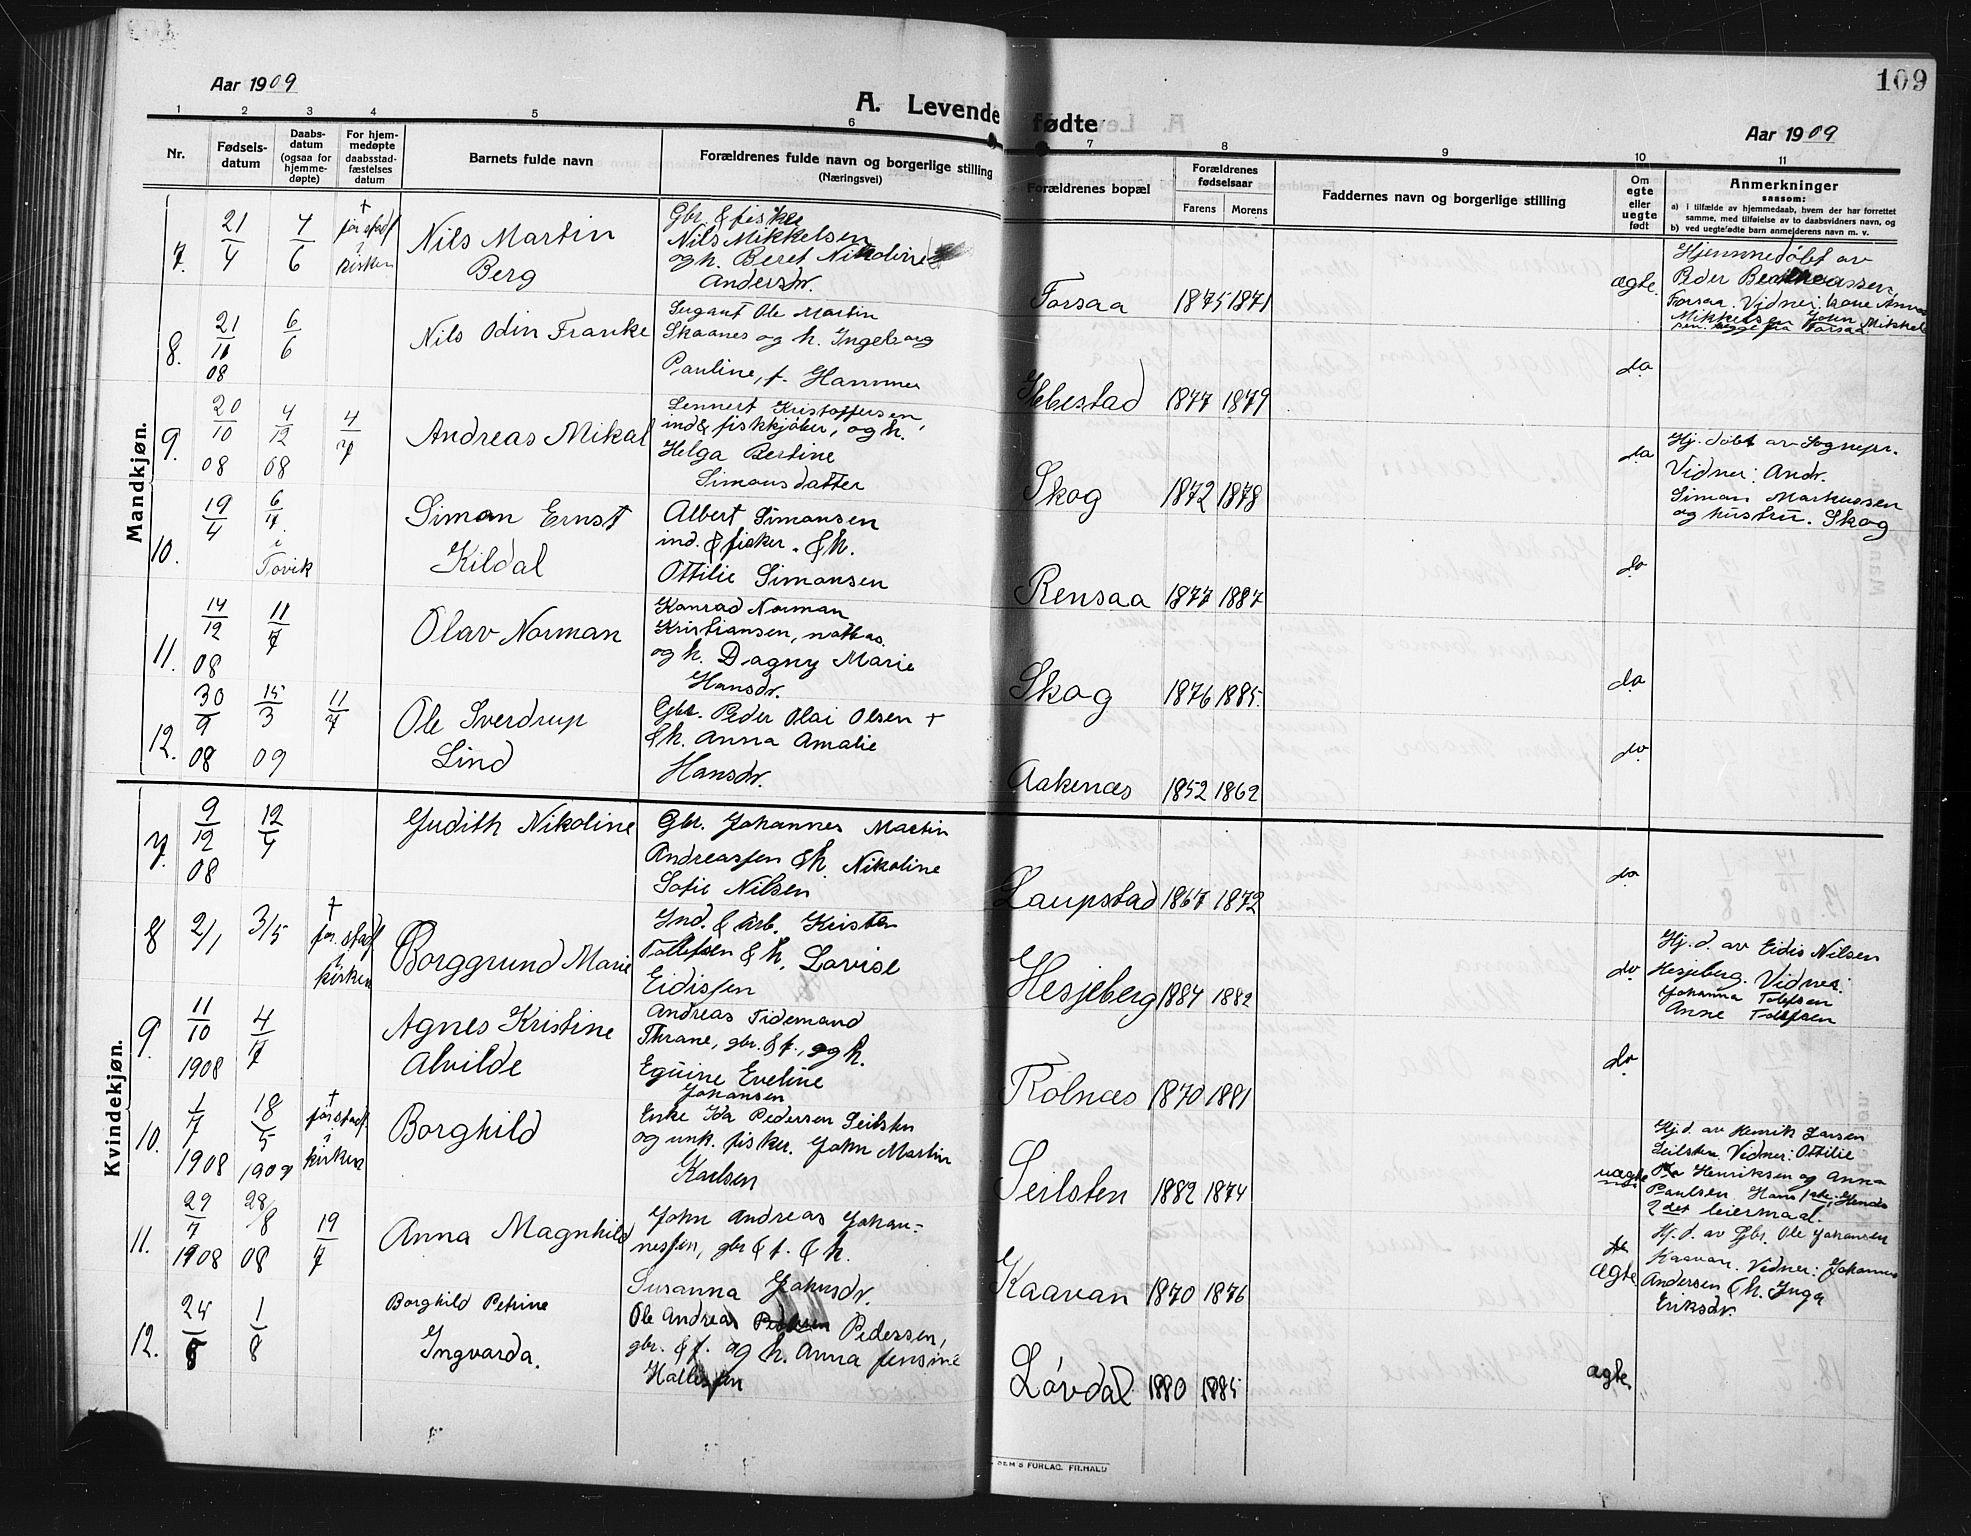 109
Aar 1909
A. Levende fødte
Aar 1909
1 2 3 4 5 6 7 8 9 10 11
Nr.
Fødsels-
datum
Daabs-
datum
(ogsaa for
hjemme-
døpte)
For hjem-
medøpte
daabsstad-
fæstelses
datum
Barnets fulde navn
Forældrenes fulde navn og borgerlige stilling
(Næringsvei)
Forældrenes bopæl
Forældrenes
fødselsaar
Farens Morens
Faddernes navn og borgerlige stilling
Om
egte
eller
uegte
født
Anmerkninger
saasom:
a) i tilfælde av hjemmedaab, hvem der har forrettet
samme, med tilføielse av to daabsvidners navn, og
b) ved uegtefødte barn anmelderens navn m. v.
Mandkjøn.
7. 21/4 4/6 † før stadf. i kirken
Nils Martin
Berg
Gbr. & fisker
Nils Mikkelsen
og h. Beret Nikoline
Andersdr.
Forsaa 1875 1871 ægte
Hjemmedøbt av
Peder
Forsaa. Vidner: Anna
Mikkelsen John Mikkel
sen. begge fra Forsaa.
8. 21/11 08 6/6
Nils Odin Franke
Sergant Ole Martin
Skaanes og h. Ingeborg
Pauline, f. Hammer
Ibestad 1877 1879 do
9. 20/10 08 4/12 08 4/7
Andreas Mikal
Lennert Kristoffersen,
ind & fiskkjøber, og h.
Helga Bertine
Simonsdatter
Skog 1872 1878 do
Hj. døbt av Sognepr.
Vidner: Andr.
Simon Markussen
og hustru. Skog
10. 19/4 6/7. i Tovik
Simon Ernst
Kildal
Albert Simonsen
ind. & fisker. & h.
Ottilie Simonsen
Rensaa 1877 1887 do
11. 14/12 08 11/7
Olav Norman
Konrad Norman
Kristiansen,
og h. Dagny Marie
Hansdr.
Skog 1876 1885. do
12. 30/9 08 15/3 09 11/7
Ole Sverdrup
Lind
Gbr. Peder Olai Olsen +
& h. Anna Amalie
Hansdr.
Aakenæs 1852 1862 do
Kvindekjøn.
7. 9/12 08 12/4
Judith Nikoline
Gbr. Johannes Martin
Andreassen & h. Nikoline
Sofie Nilsen
Laupstad 1867 1872 do
8 2/1 3/5 † før. stadf i kirken
Borggrund Marie
Ind. & Arb. Kristen
Tollefsen & h. Lovise
Eidissen
Hesjeberg 1884 1882 do
Hj. d. av Eidis Nilsen
Hesjeberg. Vidner:
Johanna Tollefsen
Anne Tollefsen
9. 11/10 1908 4/7
Agnes Kristine
Alvilde
Andreas Tidemand
Thrane, gbr. & f., og h.
Eguine Eveline
Johansen
Rolnæs 1870 1881 do
10. 1/7 1908 18/5 1909 † før stadf. i kirken
Borghild
Enke Ida Pedersen Seilsten
og unk. fisker. John Martin
Karlsen
Seilsten 1882 1874 uægte
Hj. d. av Henrik Larsen
Seilsten. Vidner: Ottilie
Henriksen og Anna
Paulsen. Hans 1ste, Hendes
2det leiermaal.
11. 29/7 1908 28/8 08 19/7
Anna Magnhild
John Andreas Johan-
nessen, gbr & f. & h.
Susanna Johnsdr.
Kaavan 1870 1876 ægte
Hj. d. av Gbr. Ole Johansen
Kaavan. Vidner: Johannes
Andersen & h. Inga
Eriksdr.
12. 24/5 1/8
Borghild Petrine
Ingvarda.
Ole Andreas Pedersen,
gbr. & f. og h. Anna Jensine
Løvdal 1880 1885 ægte.
SEM'S FORLAG. FR.HALD